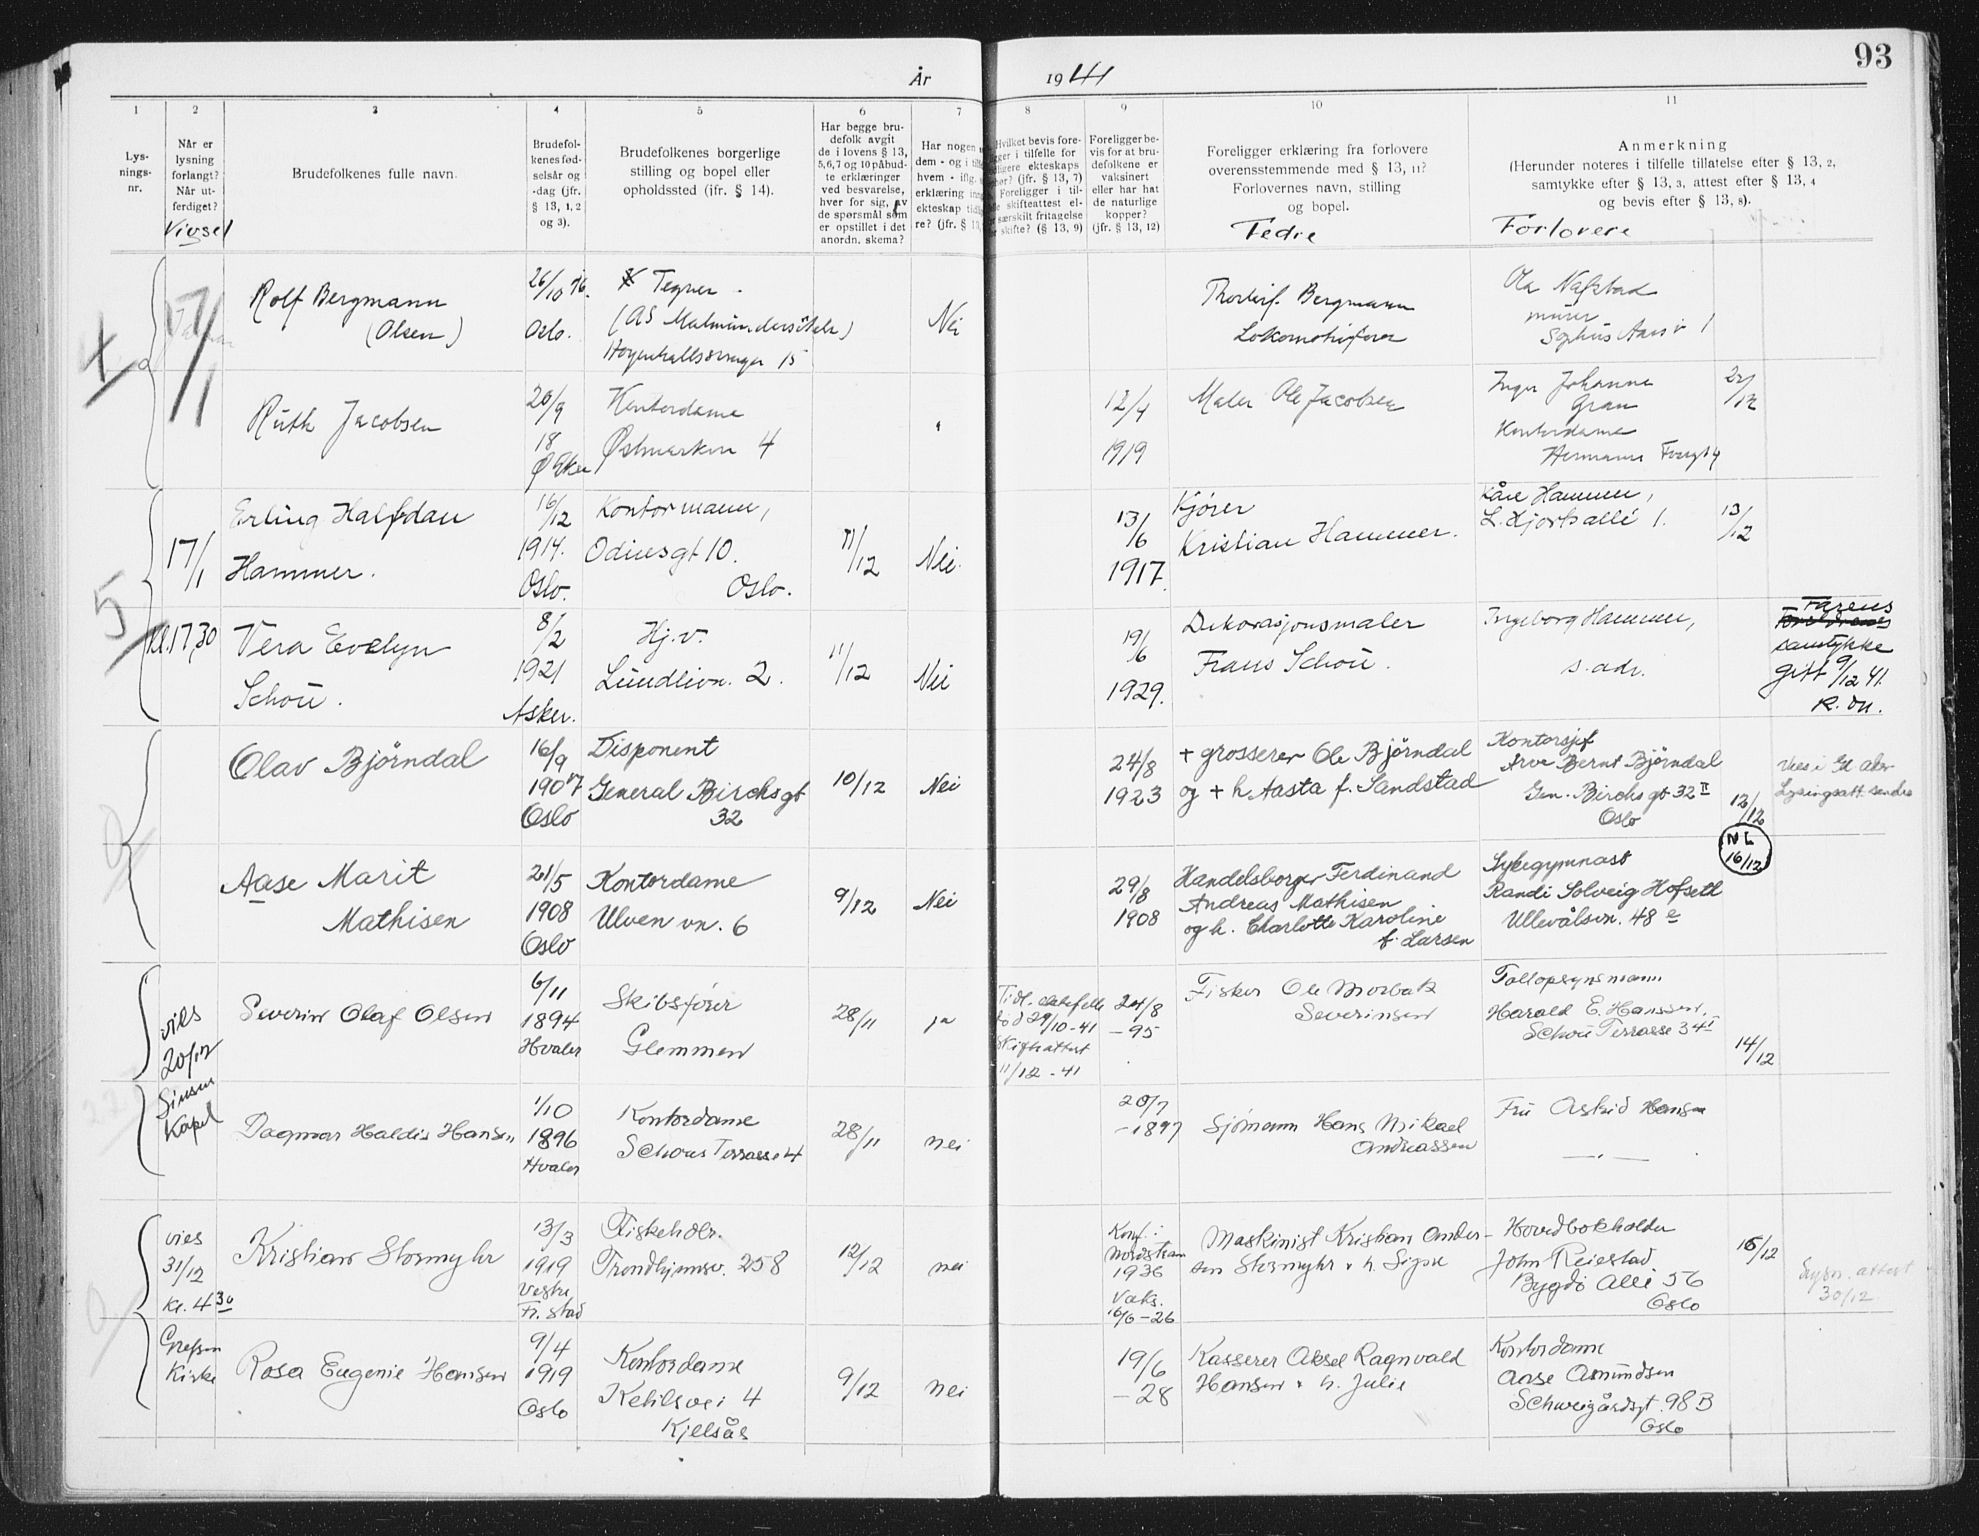 93
År 1941
1 2 3 4 5 6 7 8 9 10 11
Lys-
nings-
nr.
Når er
lysning
forlangt?
Når ut-
ferdiget?
Vigsel
Brudefolkenes fulle navn.
Brudefol-
kenes fød-
selsår og
-dag (jfr.
§ 13, 1, 2
og 3).
Brudefolkenes borgerlige
stilling og bopel eller
opholdssted (jfr. § 14).
Har begge bru-
defolk avgit
de i lovens § 13,
5,6,7 og 10 påbud-
te erklæringer
ved besvarelse,
hver for sig, av
de spørsmål som
er opstillet i det
anordn. skema?
Har nogen
dem - og i
hvem - iflg.
erklæring
ekteskap
re? (jfr. § 13
Hvilket bevis fore-
i tilfelle for
ekteskaps
? (jfr. § 13, 7)
Foreligger i til-
skifteattest el-
særskilt fritagelse
skifte? (§ 13, 9)
Foreligger be-
vis for at bru-
defolkene er
vaksinert
eller har hat
de naturlige
kopper?
(jfr. § 13, 12)
Foreligger erklæring fra forlovere
overensstemmende med § 13, 11?
Forlovernes navn, stilling
og bopel.
Fedre
Anmerkning
(Herunder noteres i tilfelle tillatelse efter § 13, 2,
samtykke efter § 13, 3, attest efter § 13, 4
og bevis efter § 13, 8).
Forlovere
4
17/1
Rolf Bergmann
(Olsen)
26/10 16.
Oslo.
Tegner
Nei
Bergmann
Lokomotivfører
Ola Nafstad
murer
Ruth Jacobsen
20/9
18
Ø. Aker
Kontordame
Østmarkvn 4
12/4
1919
Maler Ole Jacobsen
Inger Johanne
Gran
Kontordame
22/12
5
17/1
Kl. 17,30
Erling Halfdan
Hammer.
16/12
1914.
Oslo.
Kontormann,
Odinsgt 10.
Oslo.
11/12
Nei.
13/6
1917.
Kjører
Kristian Hammer.
Kåre Hammer,
L. Hjortsallé 1.
13/12
Vera Evelyn
Schou.
8/2
1921
Asker.
Hj.v.
Lundlivn. 2.
11/12
Nei
19/6
1929.
Dekorasjonsmaler
Frans Schou.
Ingeborg Hammer,
s. adr.
Farens
Foreldrenes
samtykke
gitt 9/12 41.
Olav Björndal
16/9
1907
Oslo
Disponent
General Birchsgt
32
10/12
Nei
24/8
1923
+ grosserer Ole Björndal
og + h. Aasta f. Sandstad
Kontorsjef
Arve Bernt Björndal
Gen. Birchs gt 32 II
Oslo
12/12
Vies i Gl. Aker
Lysingsatt. sendes
NL
16/12
Aase Marit
Mathisen
21/5
1908
Oslo
Kontordame
Ulven vn. 6
9/12
Nei
29/8
1908
Handelsborger Ferdinand
Andreas Mathisen
og h. Charlotte Karoline
f. Larsen
Sykegymnast
Randi Solveig Hofseth
Ullevålsvn. 48 e
vies
20/12
Sinsen
Kapel
Severin Olaf Olsen
6/11
1894
Hvaler
Skibsfører
Glemmen
28/11
ja
Tidl. ektefelle
død 29/10-41
Skifteattest
11/12-41
24/8
-95
Fisker Ole Morbak
Severinsen
Tollopsynsmann
Harald E. Hanssen.
Schou Terrasse 34 I
14/12
Dagmar Haldis Hansen
1/10
1896
Hvaler
Kontordame
Schous Terrasse 4
28/11
nei
20/7
-1897
Sjømann Hans Mikael
Andreassen
Fru Astrid Hansen
vies
31/12
kl. 4 30
Grefsen
Kirke
Kristian Stormyhr
13/3
1919
Vestre
Fr. stad
Fiskehdlr.
Trondhjemsv. 258
12/12
nei
Konf.:
Nordstran
1936
Vaks.
16/6-26
Maskinist Kristian Ander-
sen Stormyhr + h. Signe
Hovedbokholder
John Reiestad
Bygdö Allé 56
Oslo
15/12
Lysn. attest
30/12
Rosa Eugenie Hansen
9/4
1919
Oslo
Kontordame
Ketilsvei 4
Kjelsås
9/12
nei
19/6
-28
Kasserer Aksel Ragnvald
Hansen + h. Julie
Kontordame
Aase Asmundsen
Schweigårdsgt. 98 B
Oslo